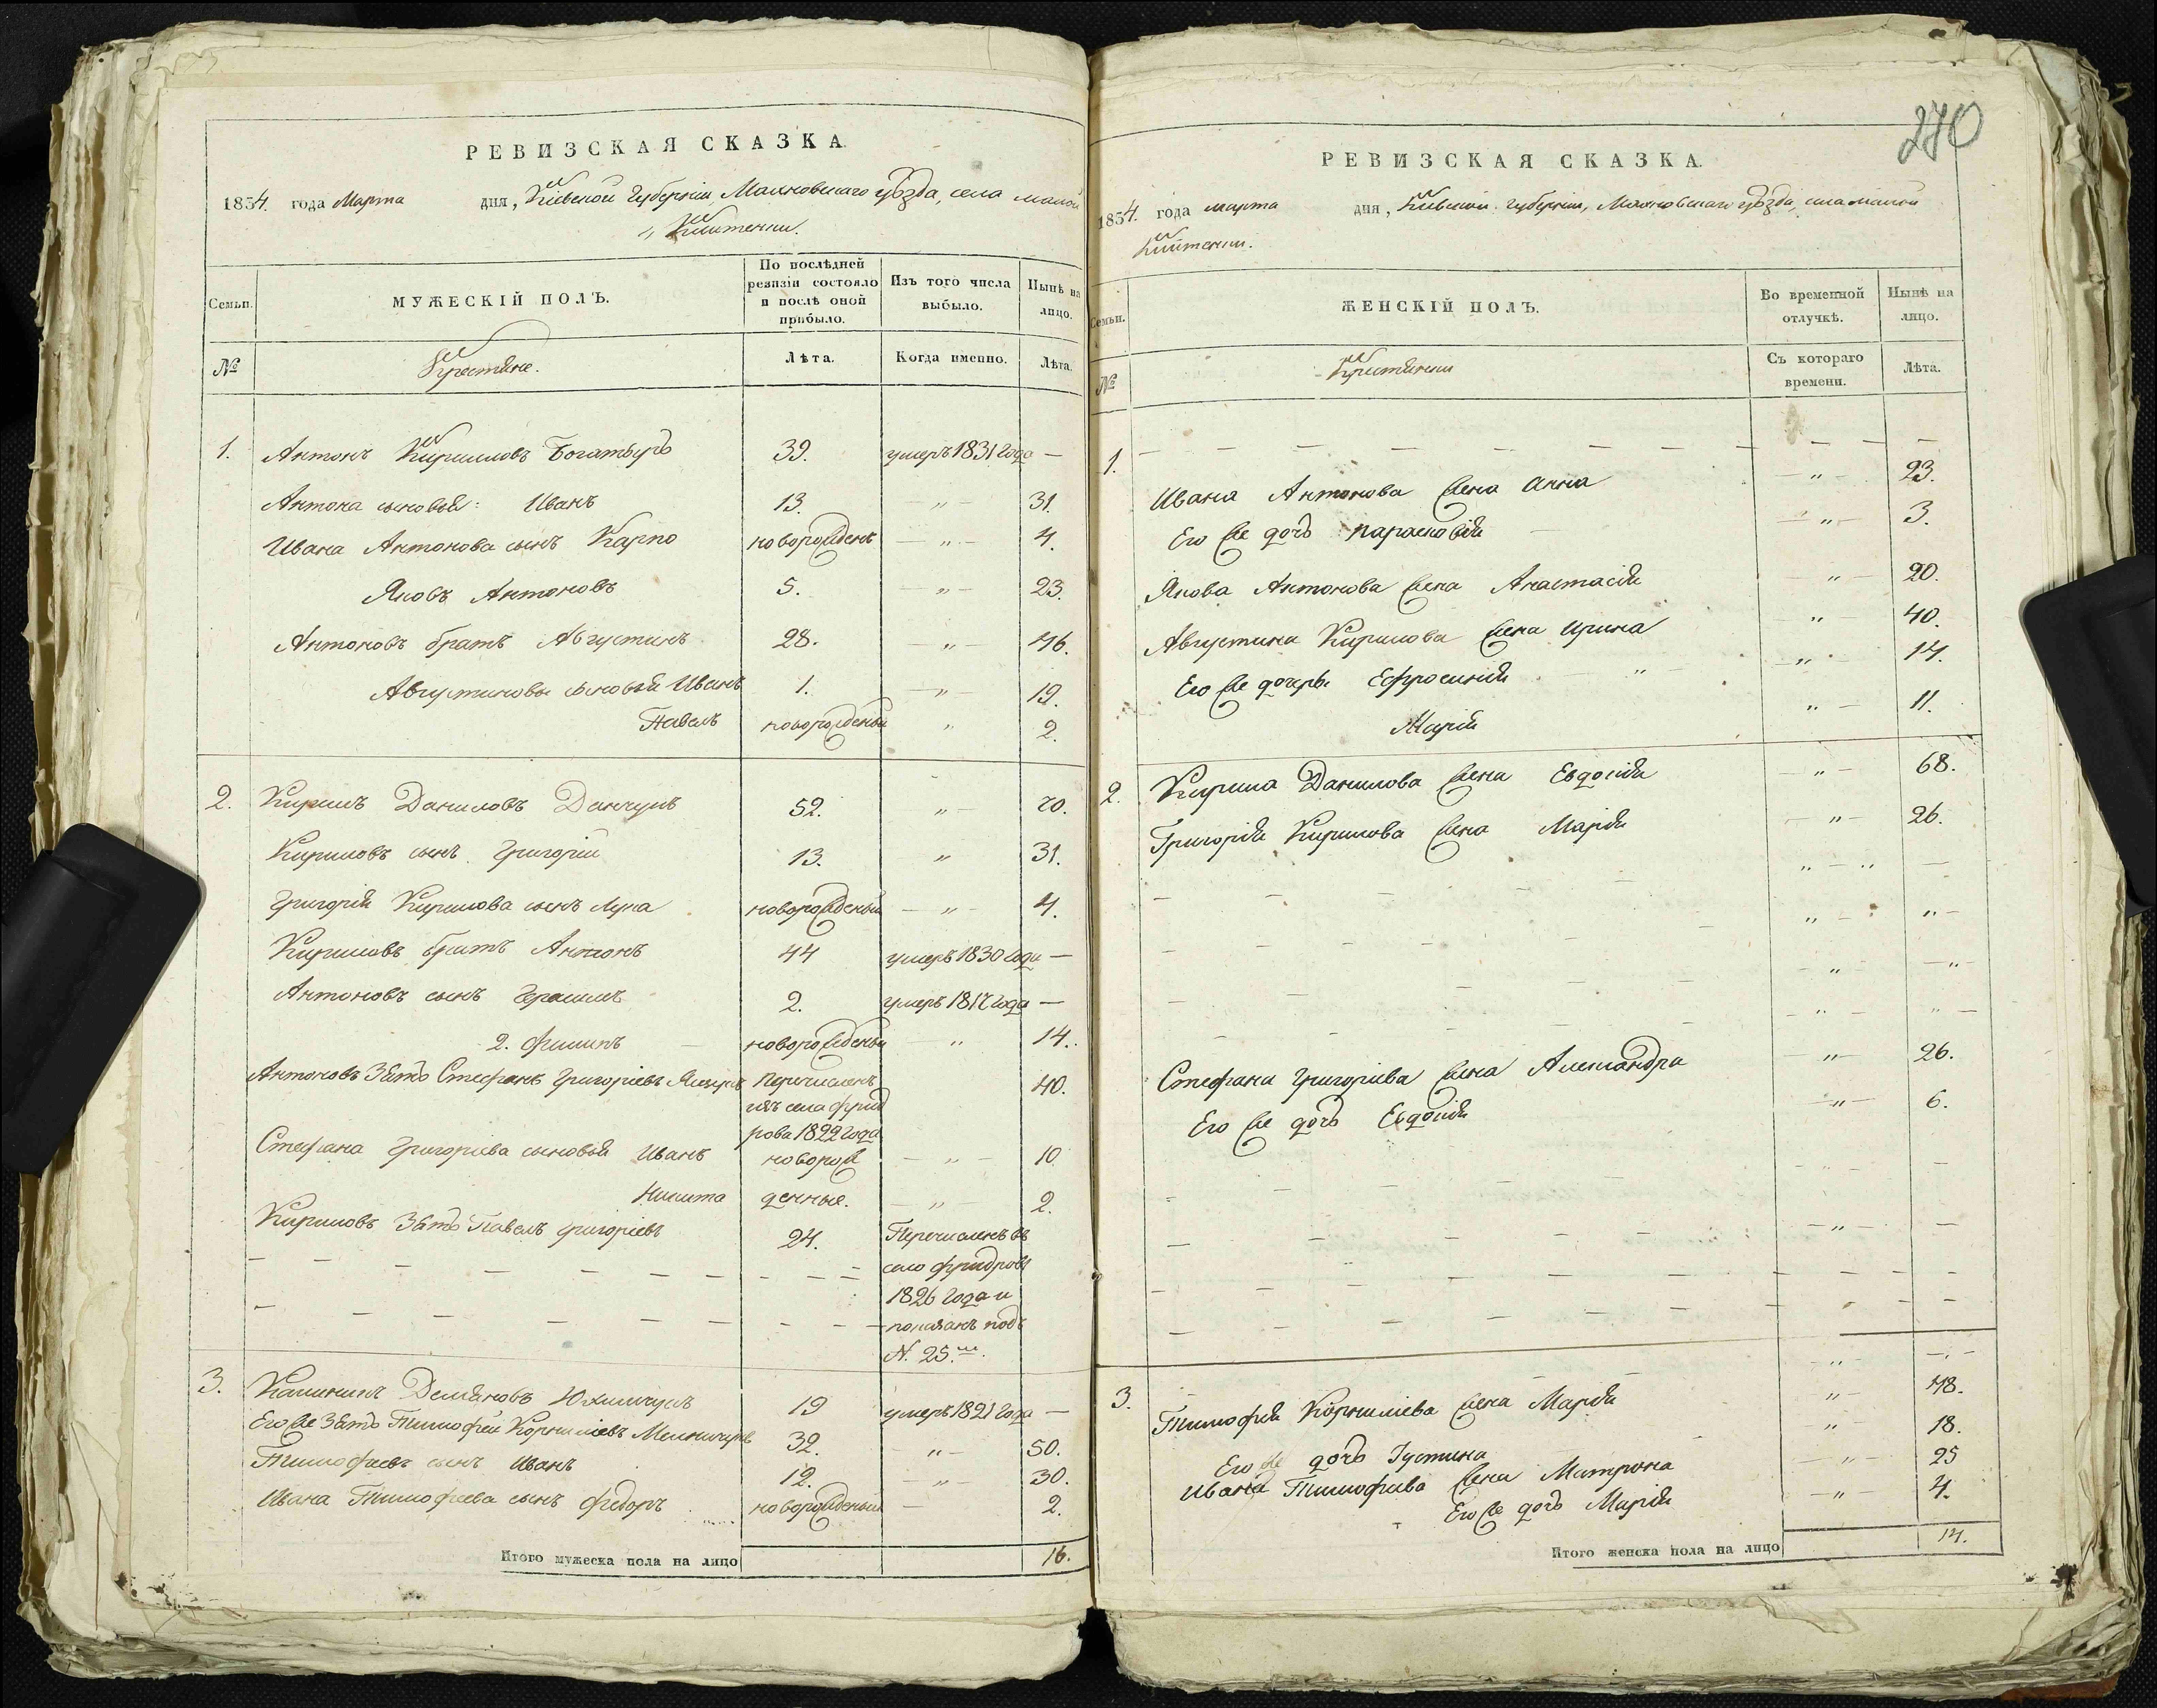 РЕВИЗСКАЯ СКАЗКА.
1834. года Марта дня, Кіевской Губерніи Махновскаго уѣзда, села малой
Клитенки.
Семьи. МУЖЕСКІЙ ПОЛЪ. По послѣдней ревизіи состояло и послѣ оной прибыло. Изъ того числа выбыло. Нынѣ на лицо.
№ Крестяне. Лѣта. Когда именно. Лѣта.
1. Антонъ Кириловъ Богатыръ 39. умеръ 1831 года —
Антона сыновья: Иванъ 13. — " — 31.
Ивана Антонова сынъ Карпо новорожденъ — " — 4.
Яковъ Антоновъ 5. — " — 23.
Антоновъ братъ Августинъ 28. — " — 46.
Августиновы сыновья Иванъ 1. — " — 19.
Павелъ новорожденый " 2.
2. Кирилъ Даниловъ Данчукъ 52. " — 70.
Кириловъ сынъ Григорій 13. " 31.
Григорія Кирилова сынъ Лука новорожденый — " — 4.
Кириловъ братъ Антонъ 44 умеръ 1830 года —
Антоновъ сынъ Герасимъ 2. умеръ 1817 года —
2. Филипъ — новорожденый — " 14.
Антоновъ Зять Стефанъ Григоріевъ перечисленъ 40.
изъ села
рова 1822 года
Стефана Григоріева сыновья Иванъ новорож — " — 10
Никита денные. — " — 2.
Кириловъ Зять Павелъ Григоріевъ 24. Перечисленъ въ
село
1826 года и
показанъ подъ
N. 25.
3. Демяновъ 19 умеръ 1821 года —
Его же Зять Тимофей Корниліевъ Мельничукъ 32. " — 50.
Тимофеевъ сынъ Иванъ 12. — " 30.
Ивана Тимофеева сынъ Федоръ новорожденый — 2.
Итого мужеска пола на лицо 16.
270
РЕВИЗСКАЯ СКАЗКА.
1834. года марта дня, Кіевской Губерніи, Махновскаго уѣзда, села малой
Клитенки.
Семьи. ЖЕНСКІЙ ПОЛЪ. Во временной отлучкѣ. Нынѣ на лицо.
№ Крестянки Съ котораго времени. Лѣта.
1. — — — — — — — —
Ивана Антонова жена Анна — " — 23.
Его же дочь Парасковія — — " — 3.
Якова Антонова жена Анастасія " — 20.
Августина Кирилова жена Ирина " — 40.
Его же дочеръ Ефросинія — " — 14.
Марія " — 11.
2. Кирила Данилова жена Евдокія " — 68.
Григорія Кирилова жена Марія — " — 26.
Стефана Григоріева жена Александра — " — 26.
Его же дочь Евдокія — " — 6.
3. Тимофея Корниліева жена Марія " — 48.
Его же дочь Іустина " 18.
Ивана Тимофеева жена Матрона — " — 25
Его же дочь Марія — " — 4.
Итого женска пола на лицо 14.